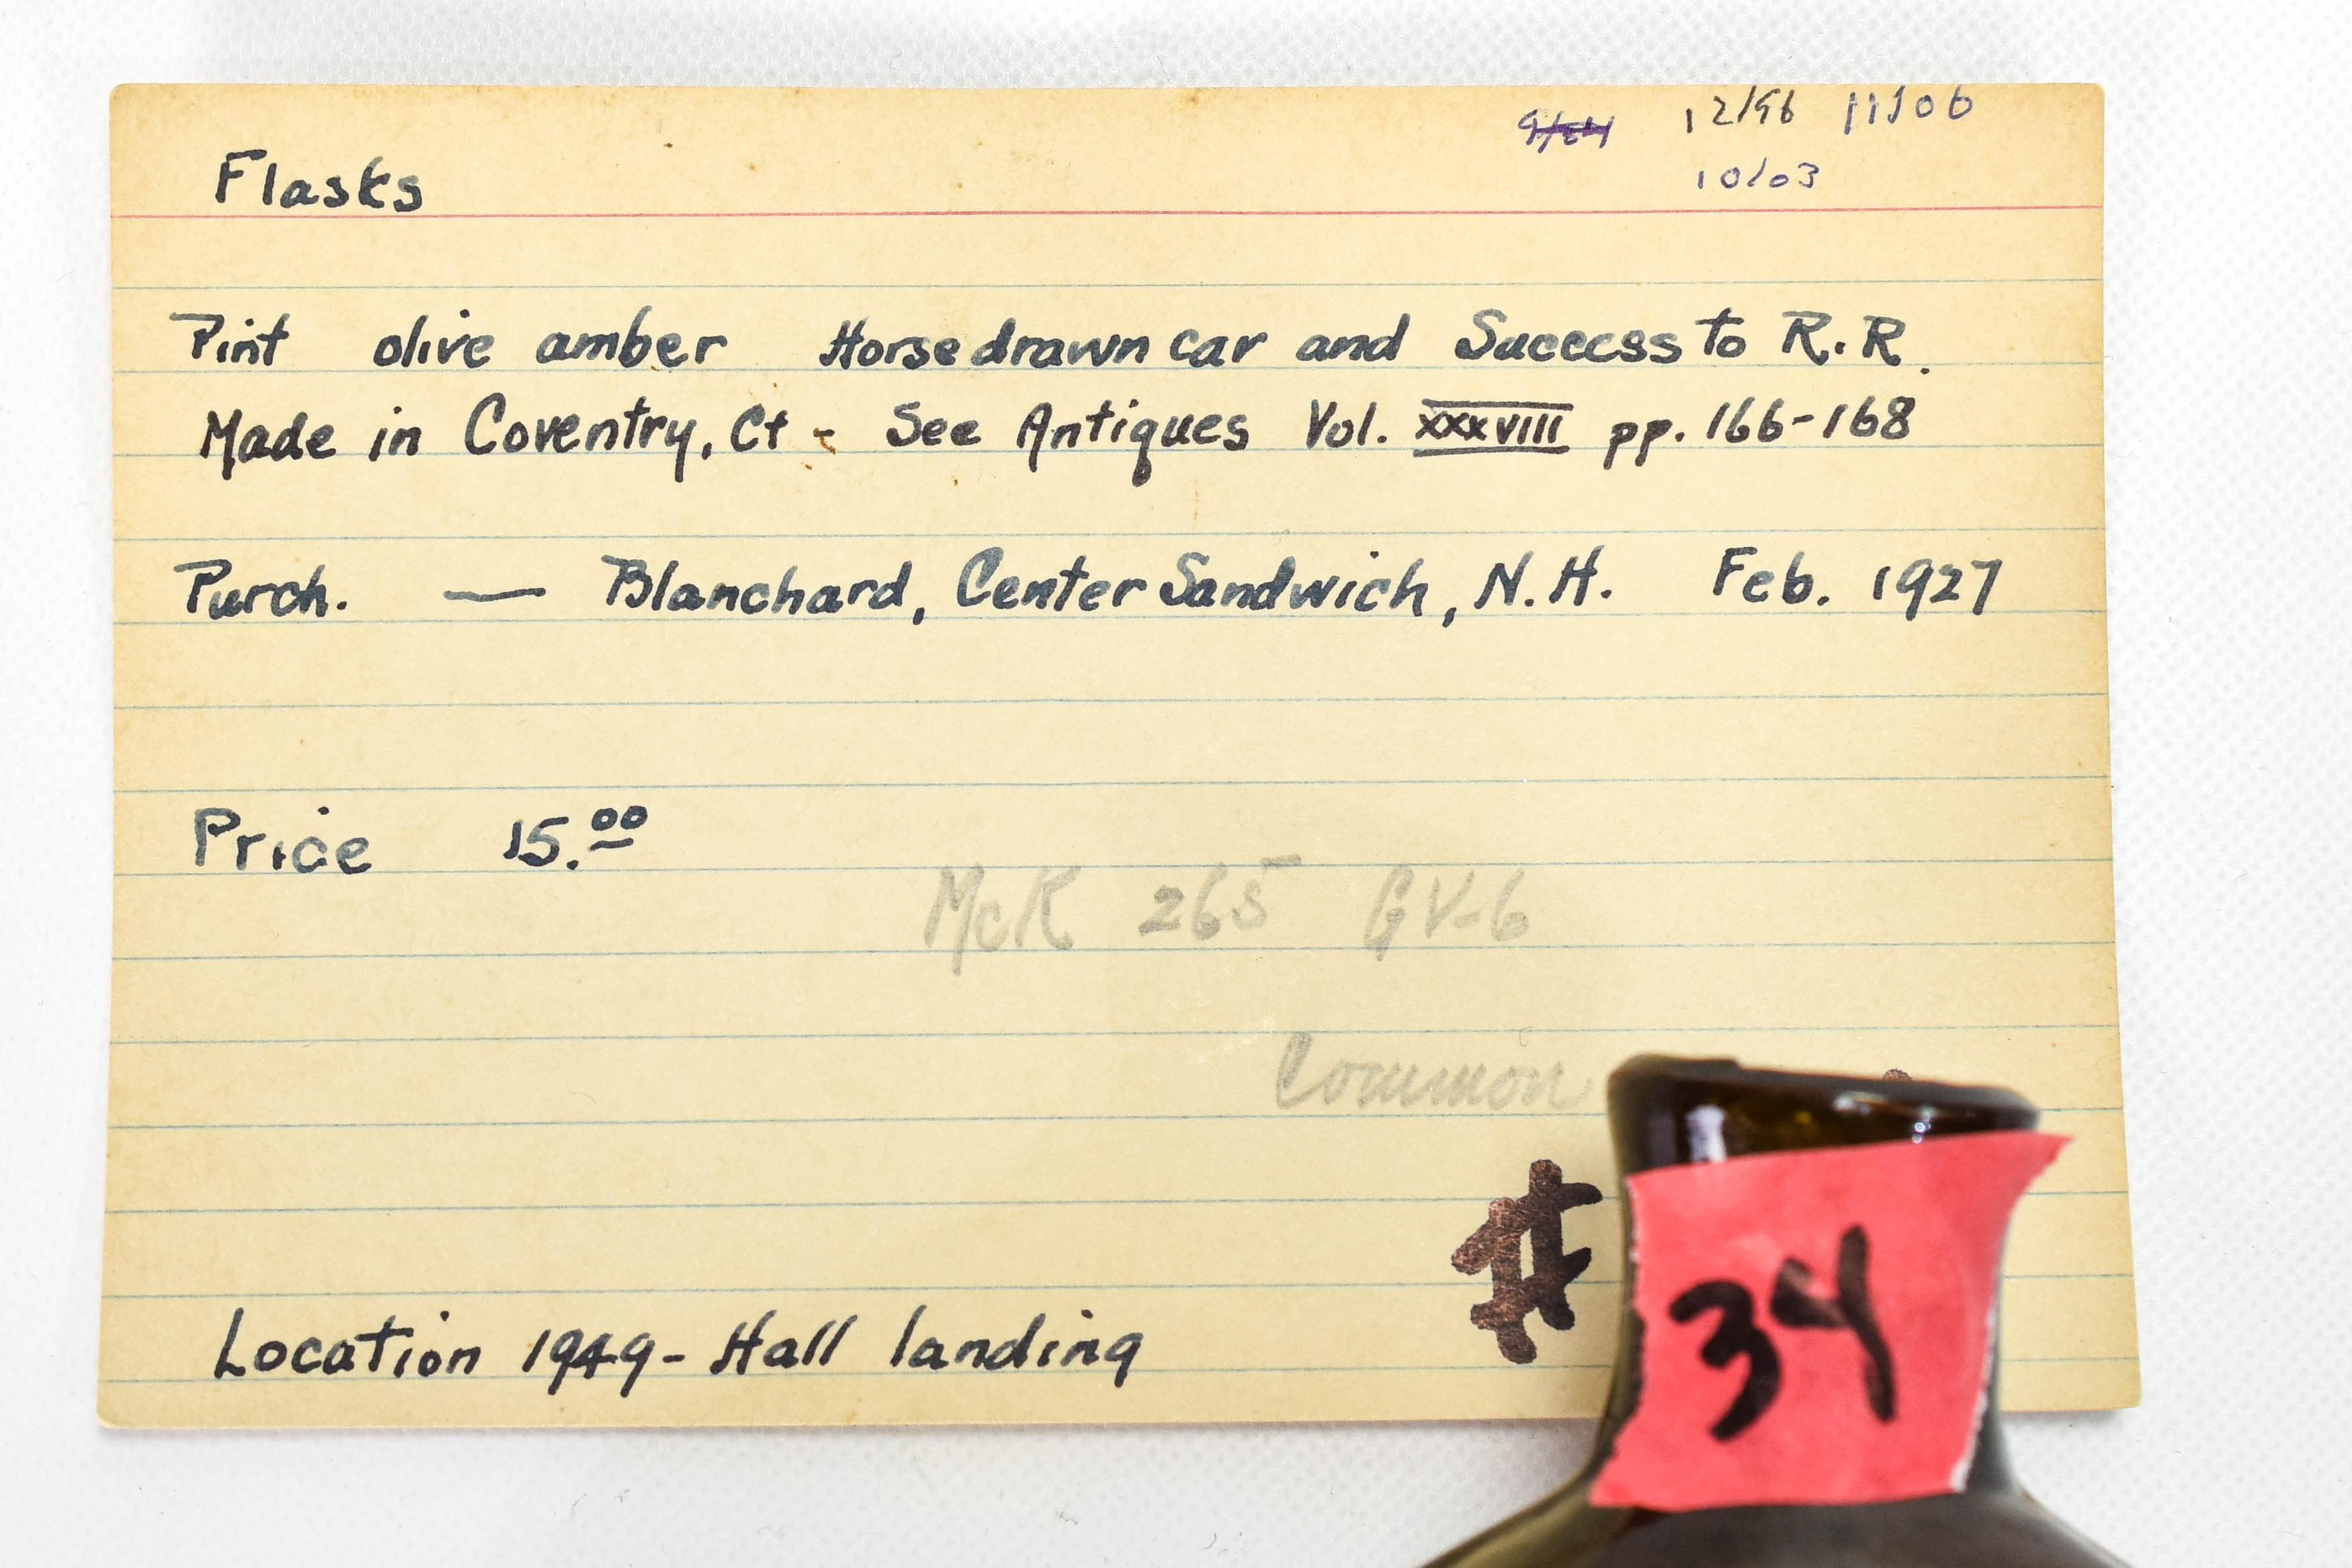 12/96 11/06
10/03
Flasks
Pint olive amber Horse drawn car and Success to R.R.
Made in Coventry, Ct - See Antiques Vol. XXXVIII pp. 166-168
Purch. — Blanchard, Center Sandwich, N.H. Feb. 1927
Price 15.00
McK 265 GV-6
Common
#
34
Location 1949 - Hall landing